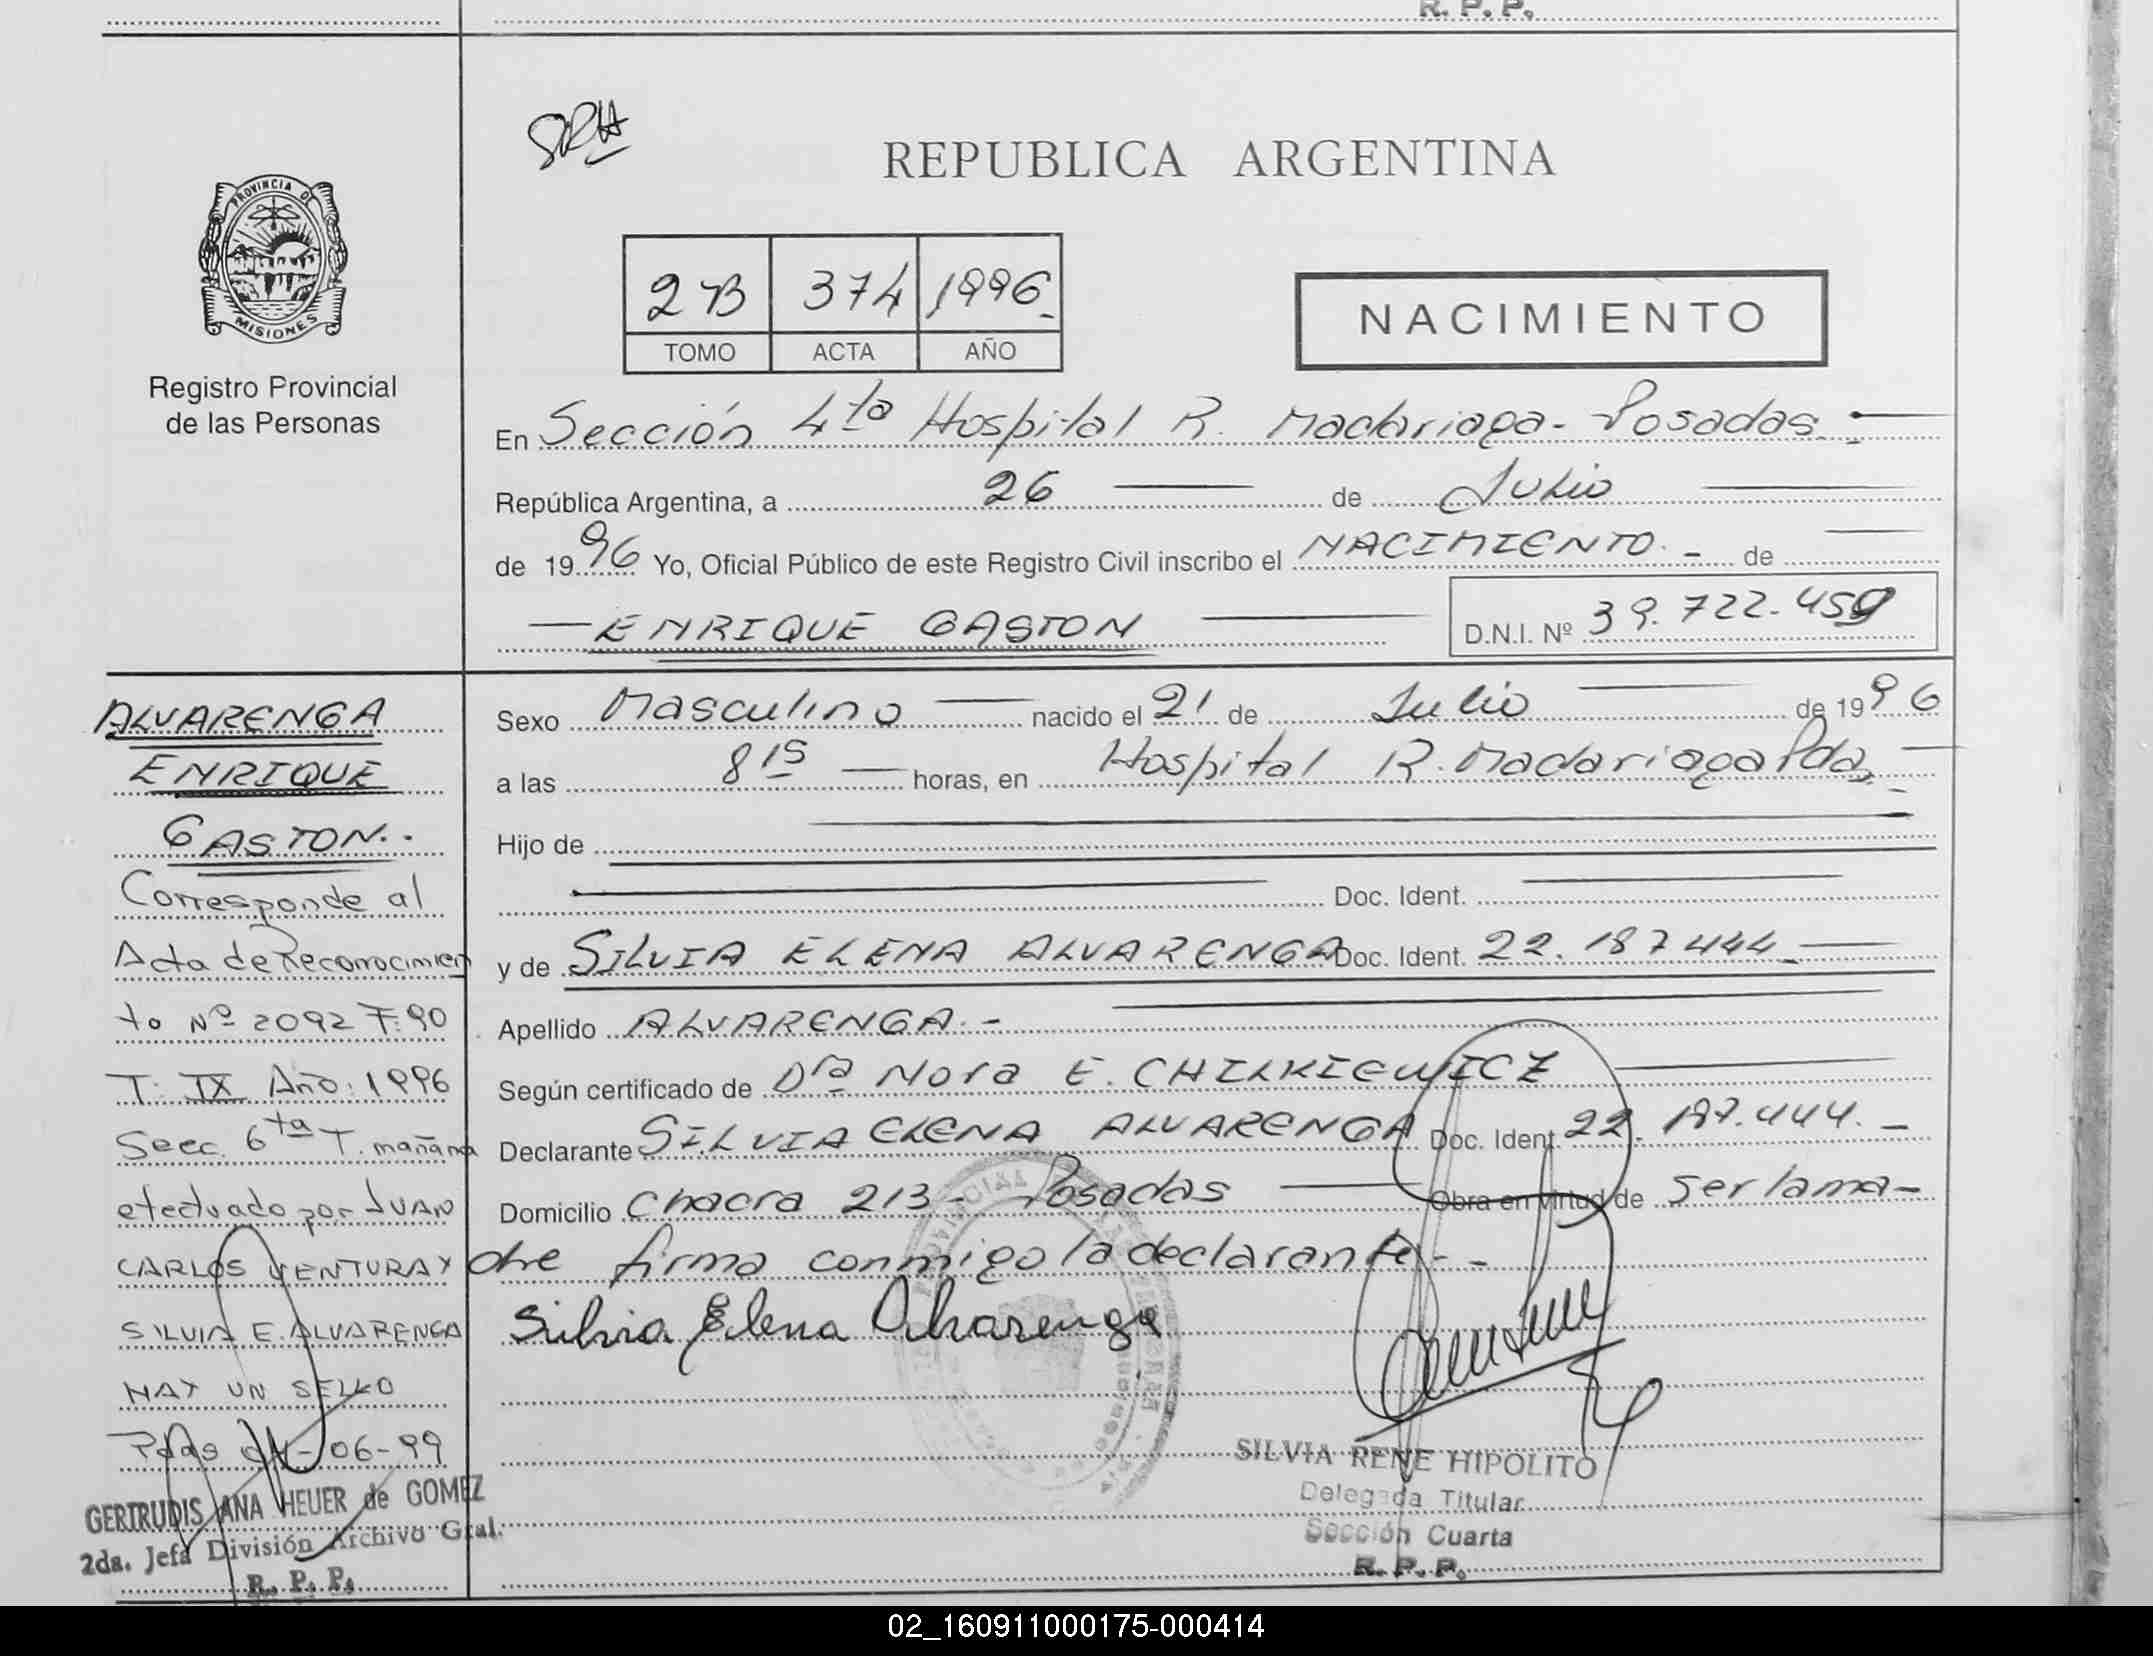 R. P. P.
SRH
REPUBLICA ARGENTINA
PROVINCIA DE
MISIONES
Registro Provincial
de las Personas
2 B 374 1996
TOMO ACTA AÑO
NACIMIENTO
En Sección 4ta Hospital R. Madariaga - Posadas
República Argentina, a 26 de Julio
de 1996 Yo, Oficial Público de este Registro Civil inscribo el NACIMIENTO de
ENRIQUE GASTON
D.N.I. Nº 39.722.459
ALVARENGA
ENRIQUE
GASTON..
Corresponde al
Acta de Reconocimien
to Nº 2092 F:90
T: IX Año: 1996
Secc. 6ta T. mañana
efectuado por JUAN
CARLOS VENTURA Y
SILVIA E. ALVARENGA
HAY UN SELLO
Pdas -06-99
GERTRUDIS ANA HEUER de GOMEZ
2da. Jefa División Archivo Gral.
R. P. P.
Sexo Masculino nacido el 21 de Julio de 1996
a las 8 15 horas, en Hospital R. Madariaga Pdas
Hijo de
Doc. Ident.
y de SILVIA ELENA ALVARENGA Doc. Ident. 22.187444
Apellido ALVARENGA. -
Según certificado de Dra Nora E. CHILKIEWICZ
Declarante SILVIA ELENA ALVARENGA Doc. Ident. 22.187.444. -
Domicilio Chacra 213 - Posadas Obra en virtud de ser la ma-
dre firma conmigo la declarante - -
Silvia Elena Alvarenga
SILVIA RENE HIPOLITO
Delegada Titular
Sección Cuarta
R. P. P.
02_160911000175-000414